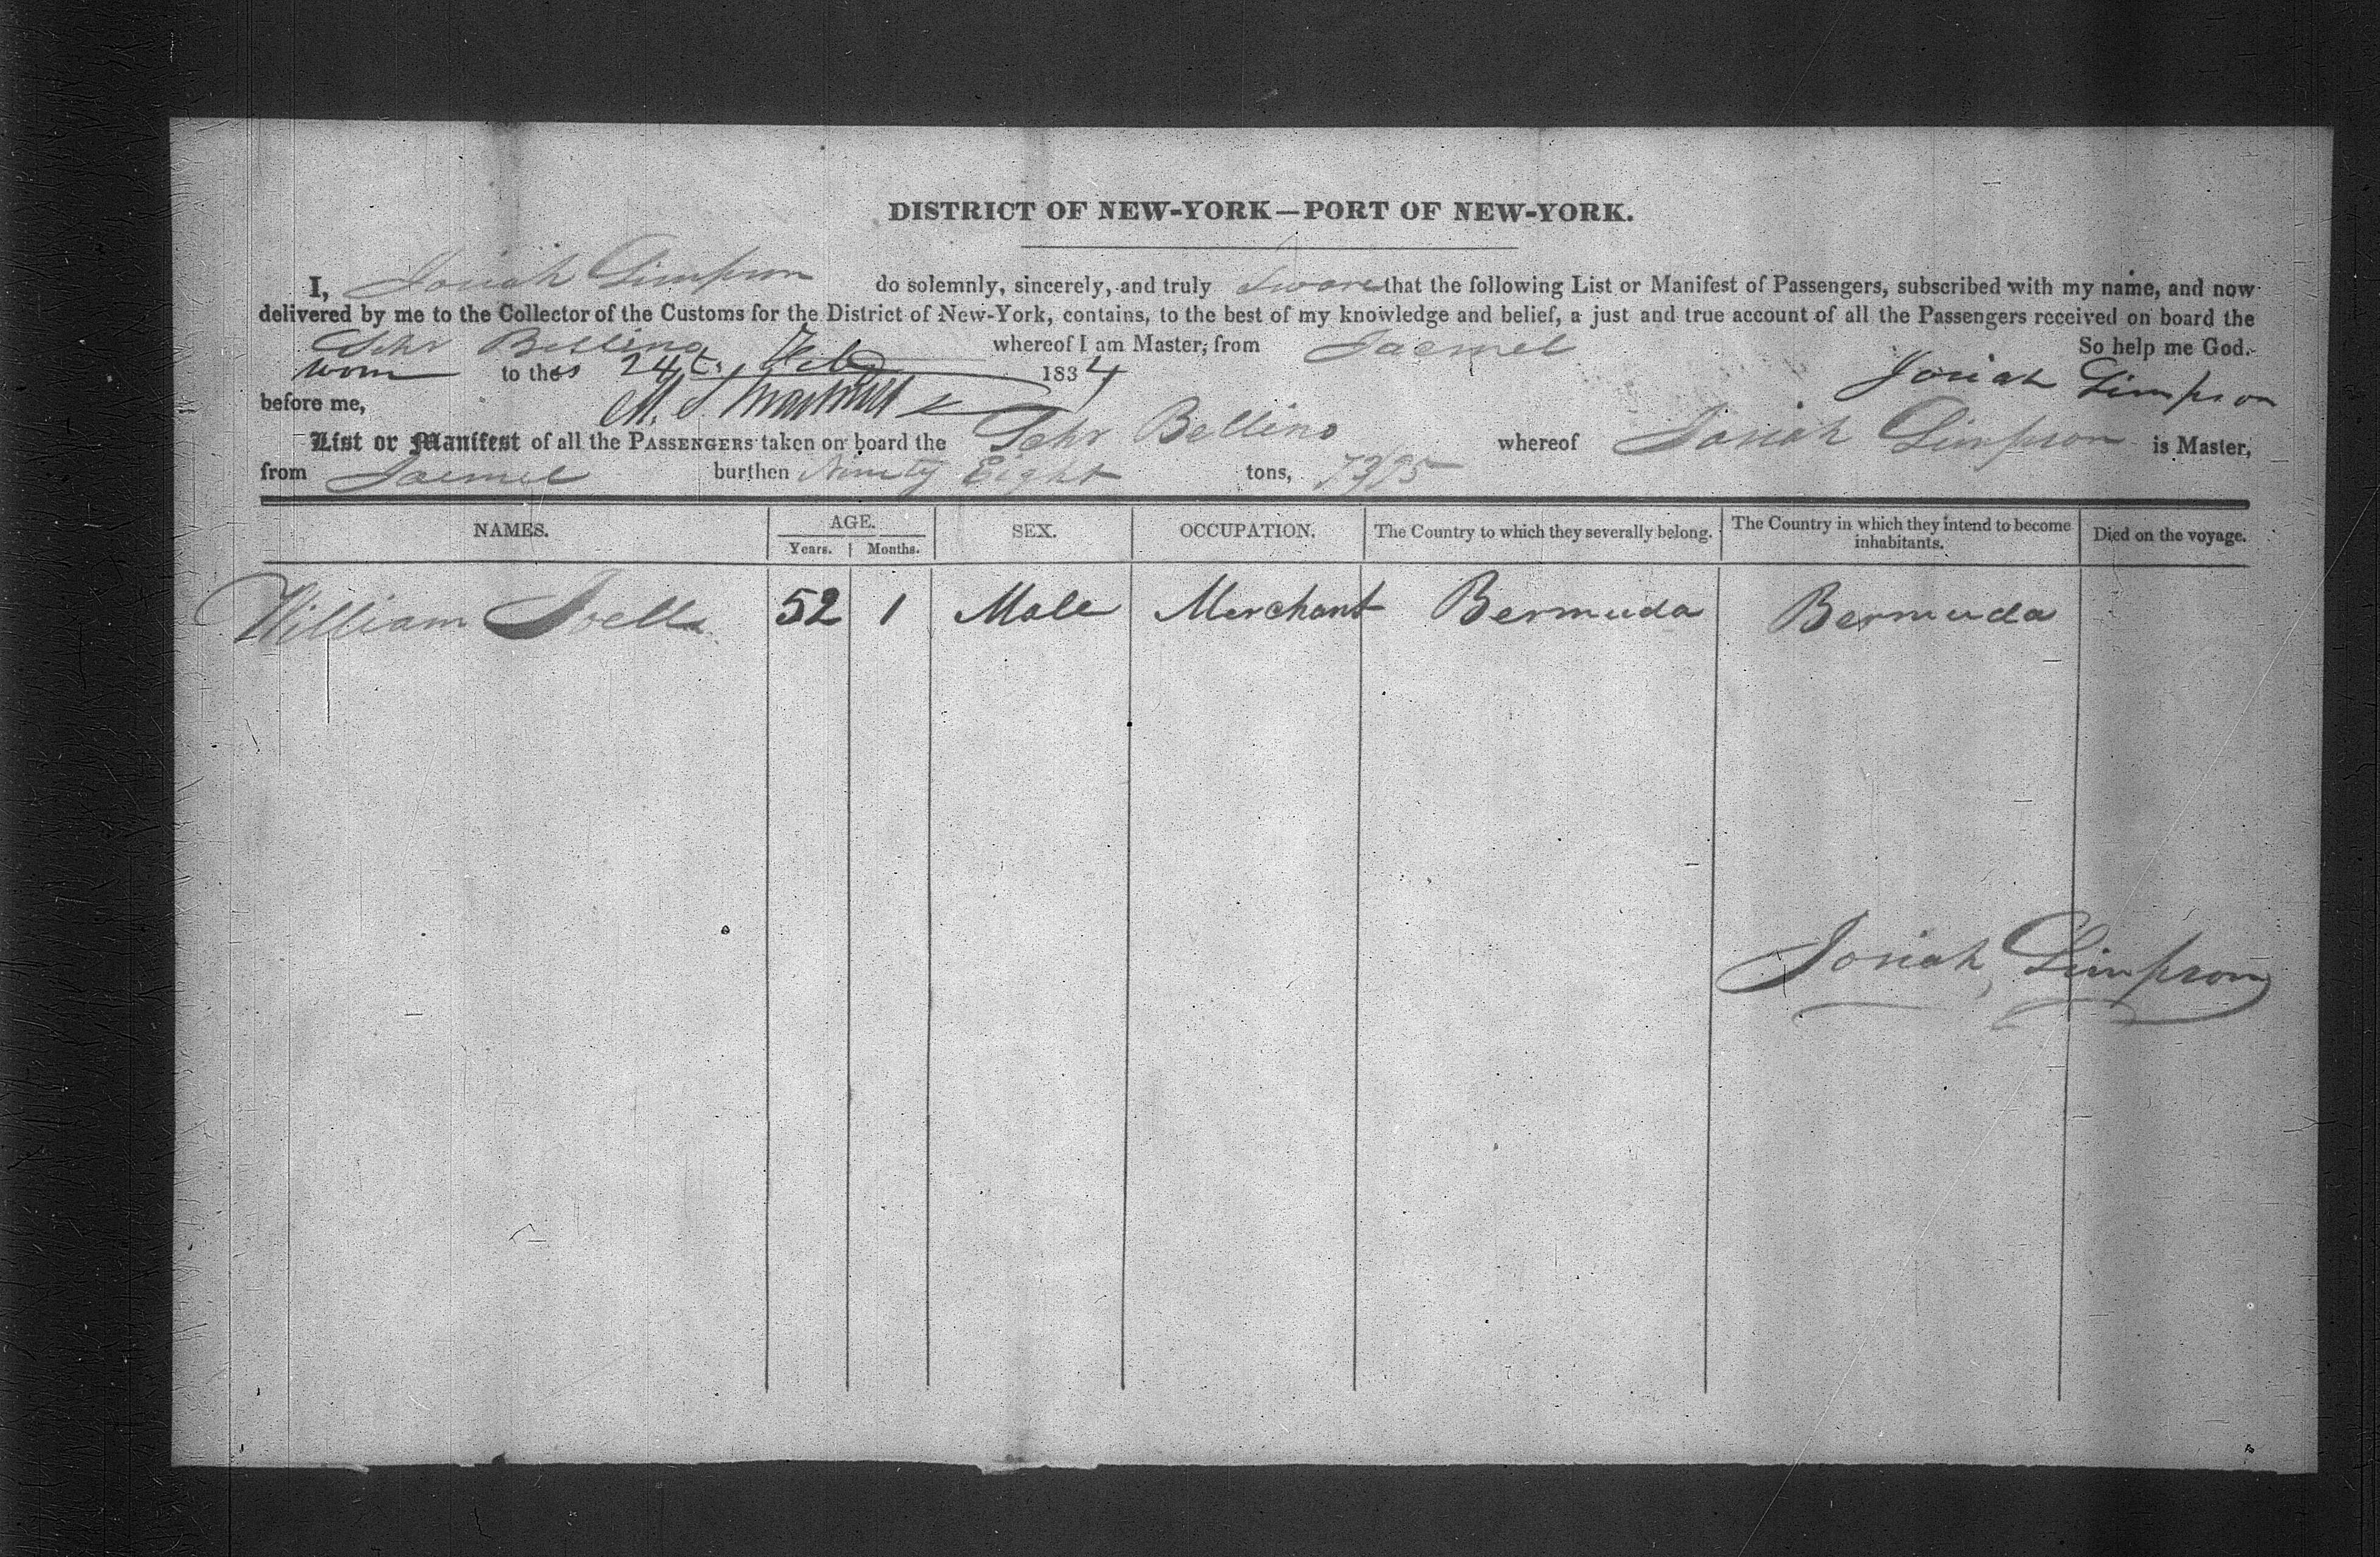 DISTRICT OF NEW-YORK—PORT OF NEW-YORK.
I, Josiah Simpson do solemnly, sincerely, and truly Swore that the following List or Manifest of Passengers, subscribed with my name, and now
delivered by me to the Collector of the Customs for the District of New-York, contains, to the best of my knowledge and belief, a just and true account of all the Passengers received on board the
Schr Bellino whereof I am Master, from Jacmel So help me God.
worn to the 24 Feb 1834 Josiah Simpson
before me, M. S.
List or Manifest of all the PASSENGERS taken on board the Schr Bellino whereof Josiah Simpson is Master,
from Jacmel burthen Ninety Eight tons, 73/95
NAMES. AGE. SEX. OCCUPATION. The Country to which they severally belong. The Country in which they intend to become inhabitants. Died on the voyage.
Years. Months.
William Joell 52 1 Male Merchant Bermuda Bermuda
Josiah Simpson